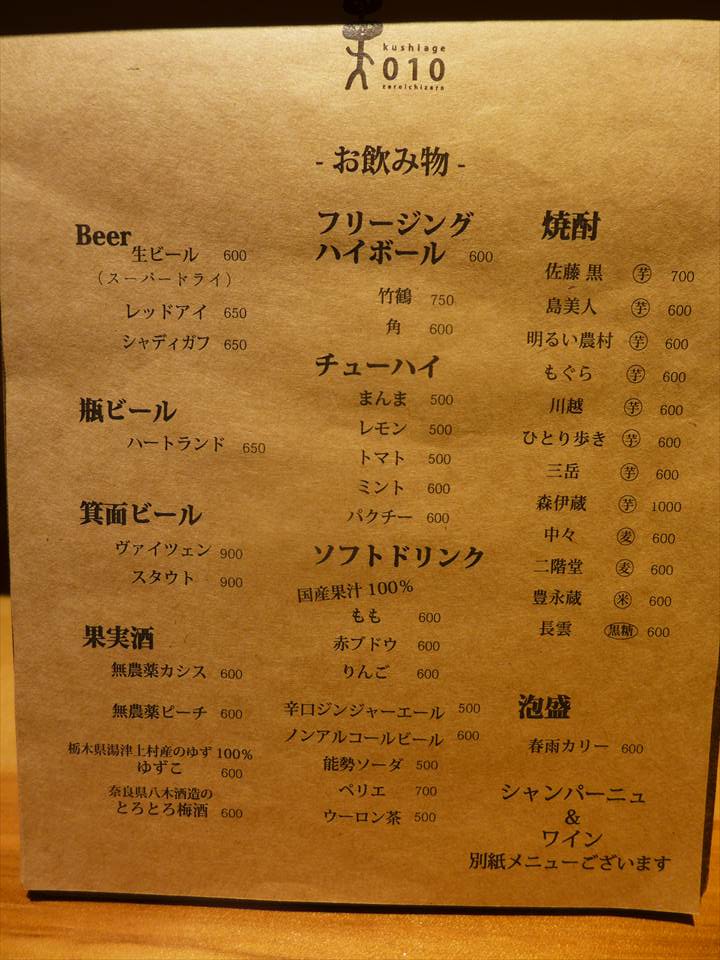 kushiage
010
zeroichizero
- お飲み物 -
Beer
生ビール 600
（スーパードライ）
レッドアイ 650
シャディガフ 650
瓶ビール
ハートランド 650
箕面ビール
ヴァイツェン 900
スタウト 900
果実酒
無農薬カシス 600
無農薬ピーチ 600
栃木県湯津上村産のゆず100%
ゆずこ 600
奈良県八木酒造の
とろとろ梅酒 600
フリージング
ハイボール 600
竹鶴 750
角 600
チューハイ
まんま 500
レモン 500
トマト 500
ミント 600
パクチー 600
ソフトドリンク
国産果汁100%
もも 600
赤ブドウ 600
りんご 600
辛口ジンジャーエール 500
ノンアルコールビール 600
能勢ソーダ 500
ペリエ 700
ウーロン茶 500
焼酎
佐藤 黒 芋 700
島美人 芋 600
明るい農村 芋 600
もぐら 芋 600
川越 芋 600
ひとり歩き 芋 600
三岳 芋 600
森伊蔵 芋 1000
中々 麦 600
二階堂 麦 600
豊永蔵 米 600
長雲 黒糖 600
泡盛
春雨カリー 600
シャンパーニュ
&
ワイン
別紙メニューございます